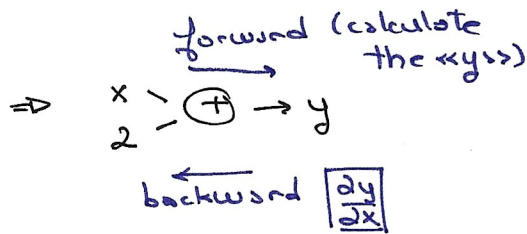 forward (calculate
the «y»)
⇒ x + → y
2
backward ∂y
∂x